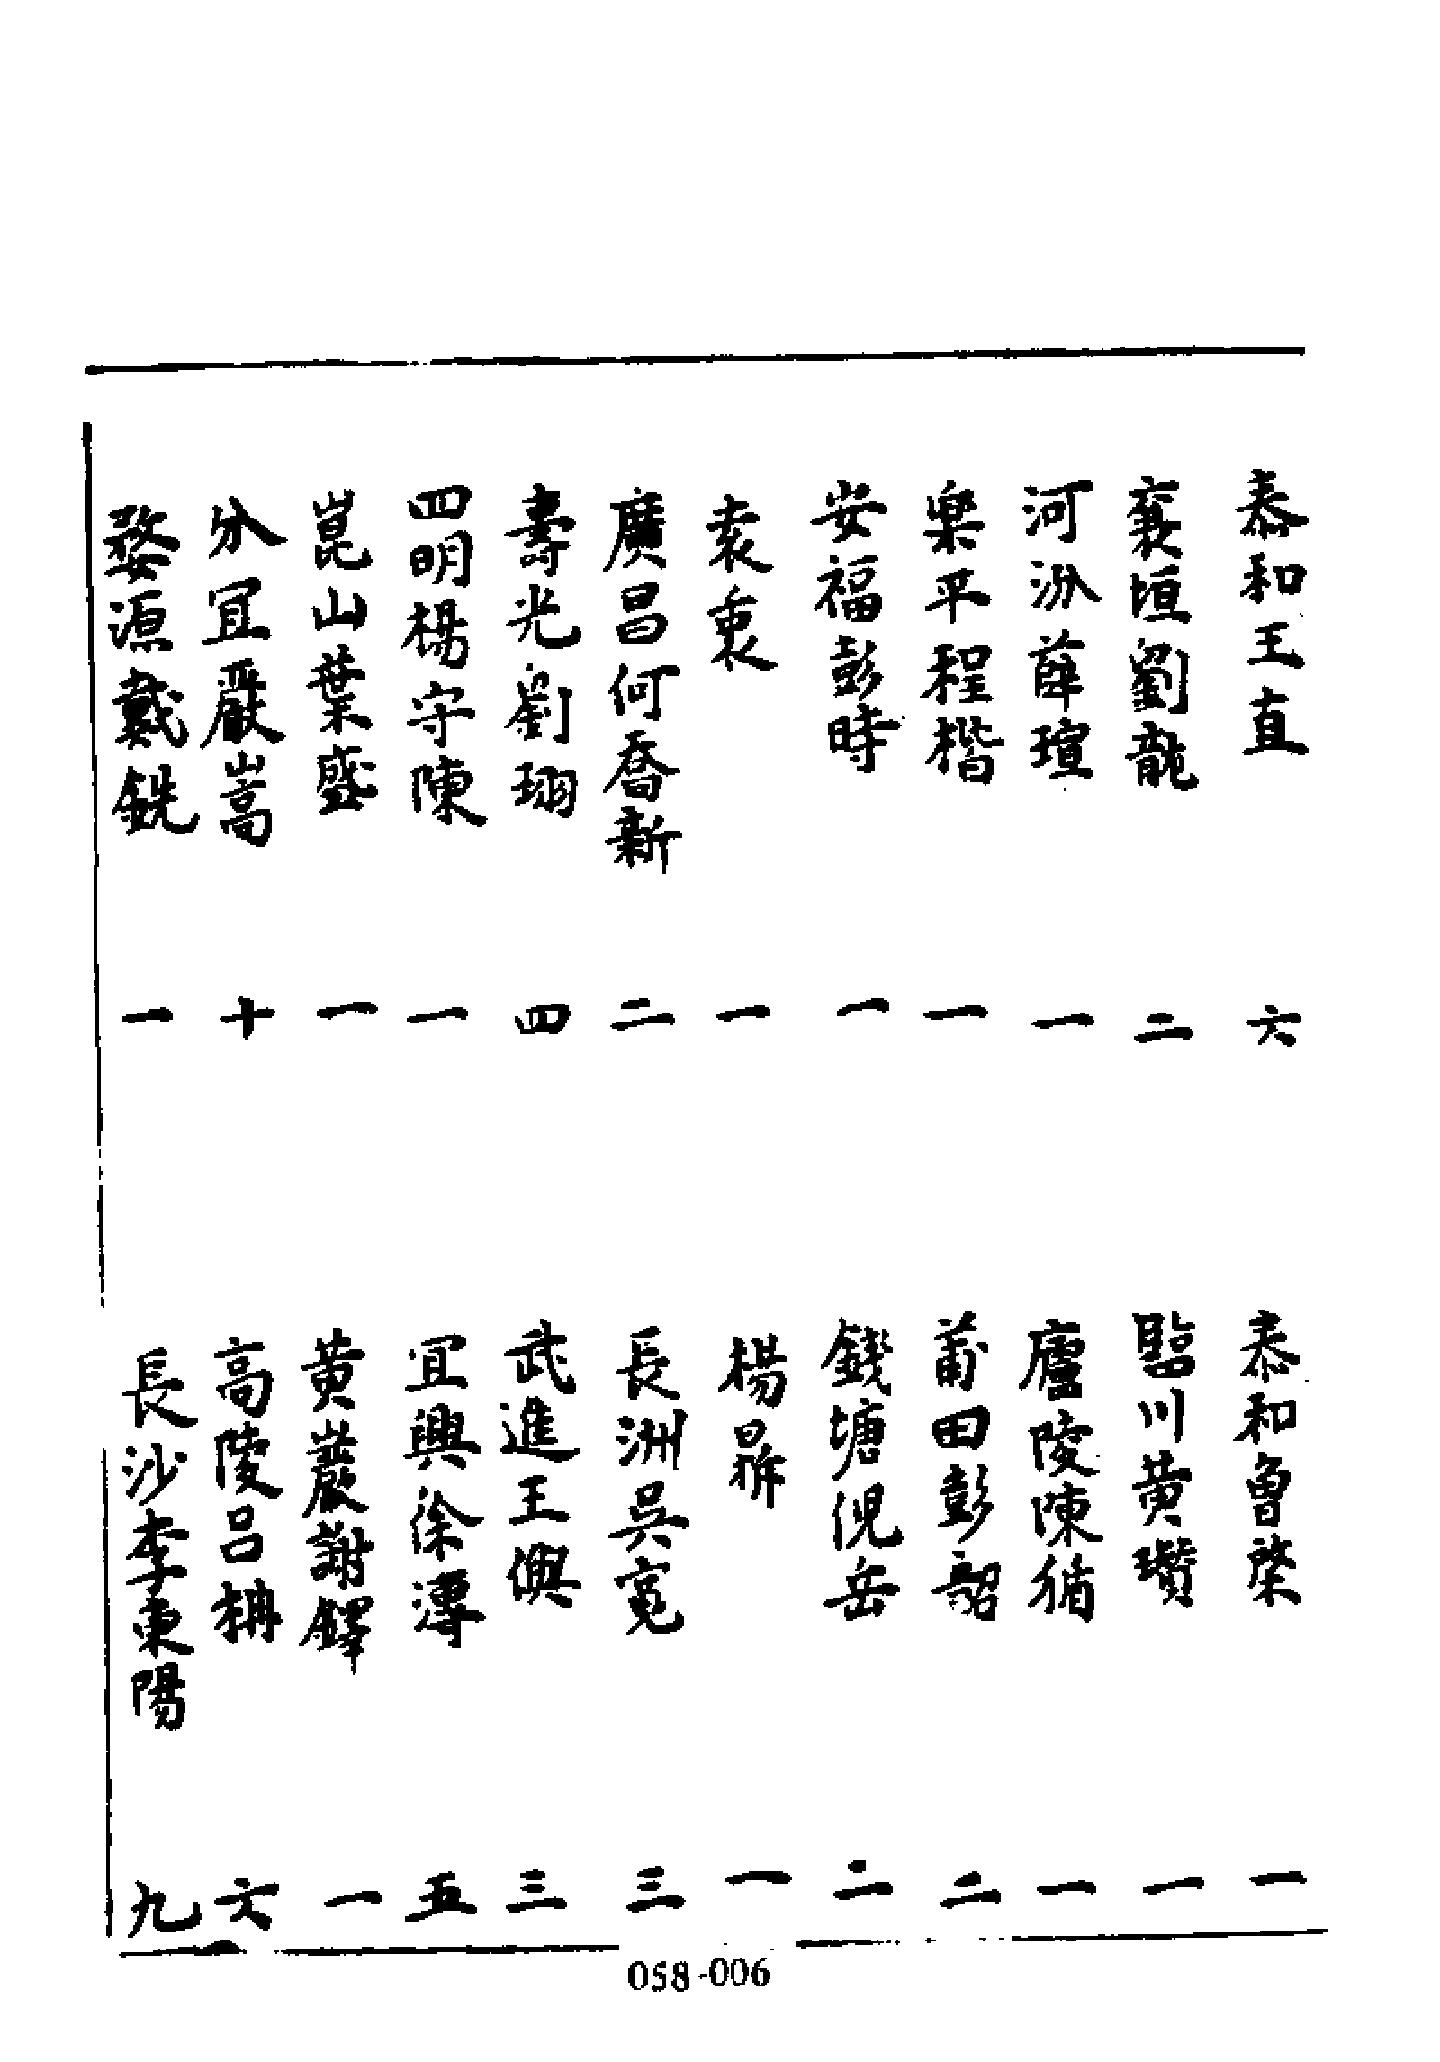 泰和王直 六 泰和曾棨 一
襄垣劉龍 二 臨川黄瓚 一
河汾薛瑄 一 廬陵陳循 一
樂平程楷 一 莆田彭韶 二
安福彭時 一 錢塘倪岳 二
袁衷 一 楊鼐 一
廣昌何喬新 二 長洲吳寬 三
壽光劉珝 四 武進王㒜 三
四明楊守陳 一 宜興徐溥 五
崑山葉盛 一 黄巖謝鐸 一
分宜嚴嵩 十 高陵吕柟 六
婺源戴銑 一 長沙李東陽 九
058-006